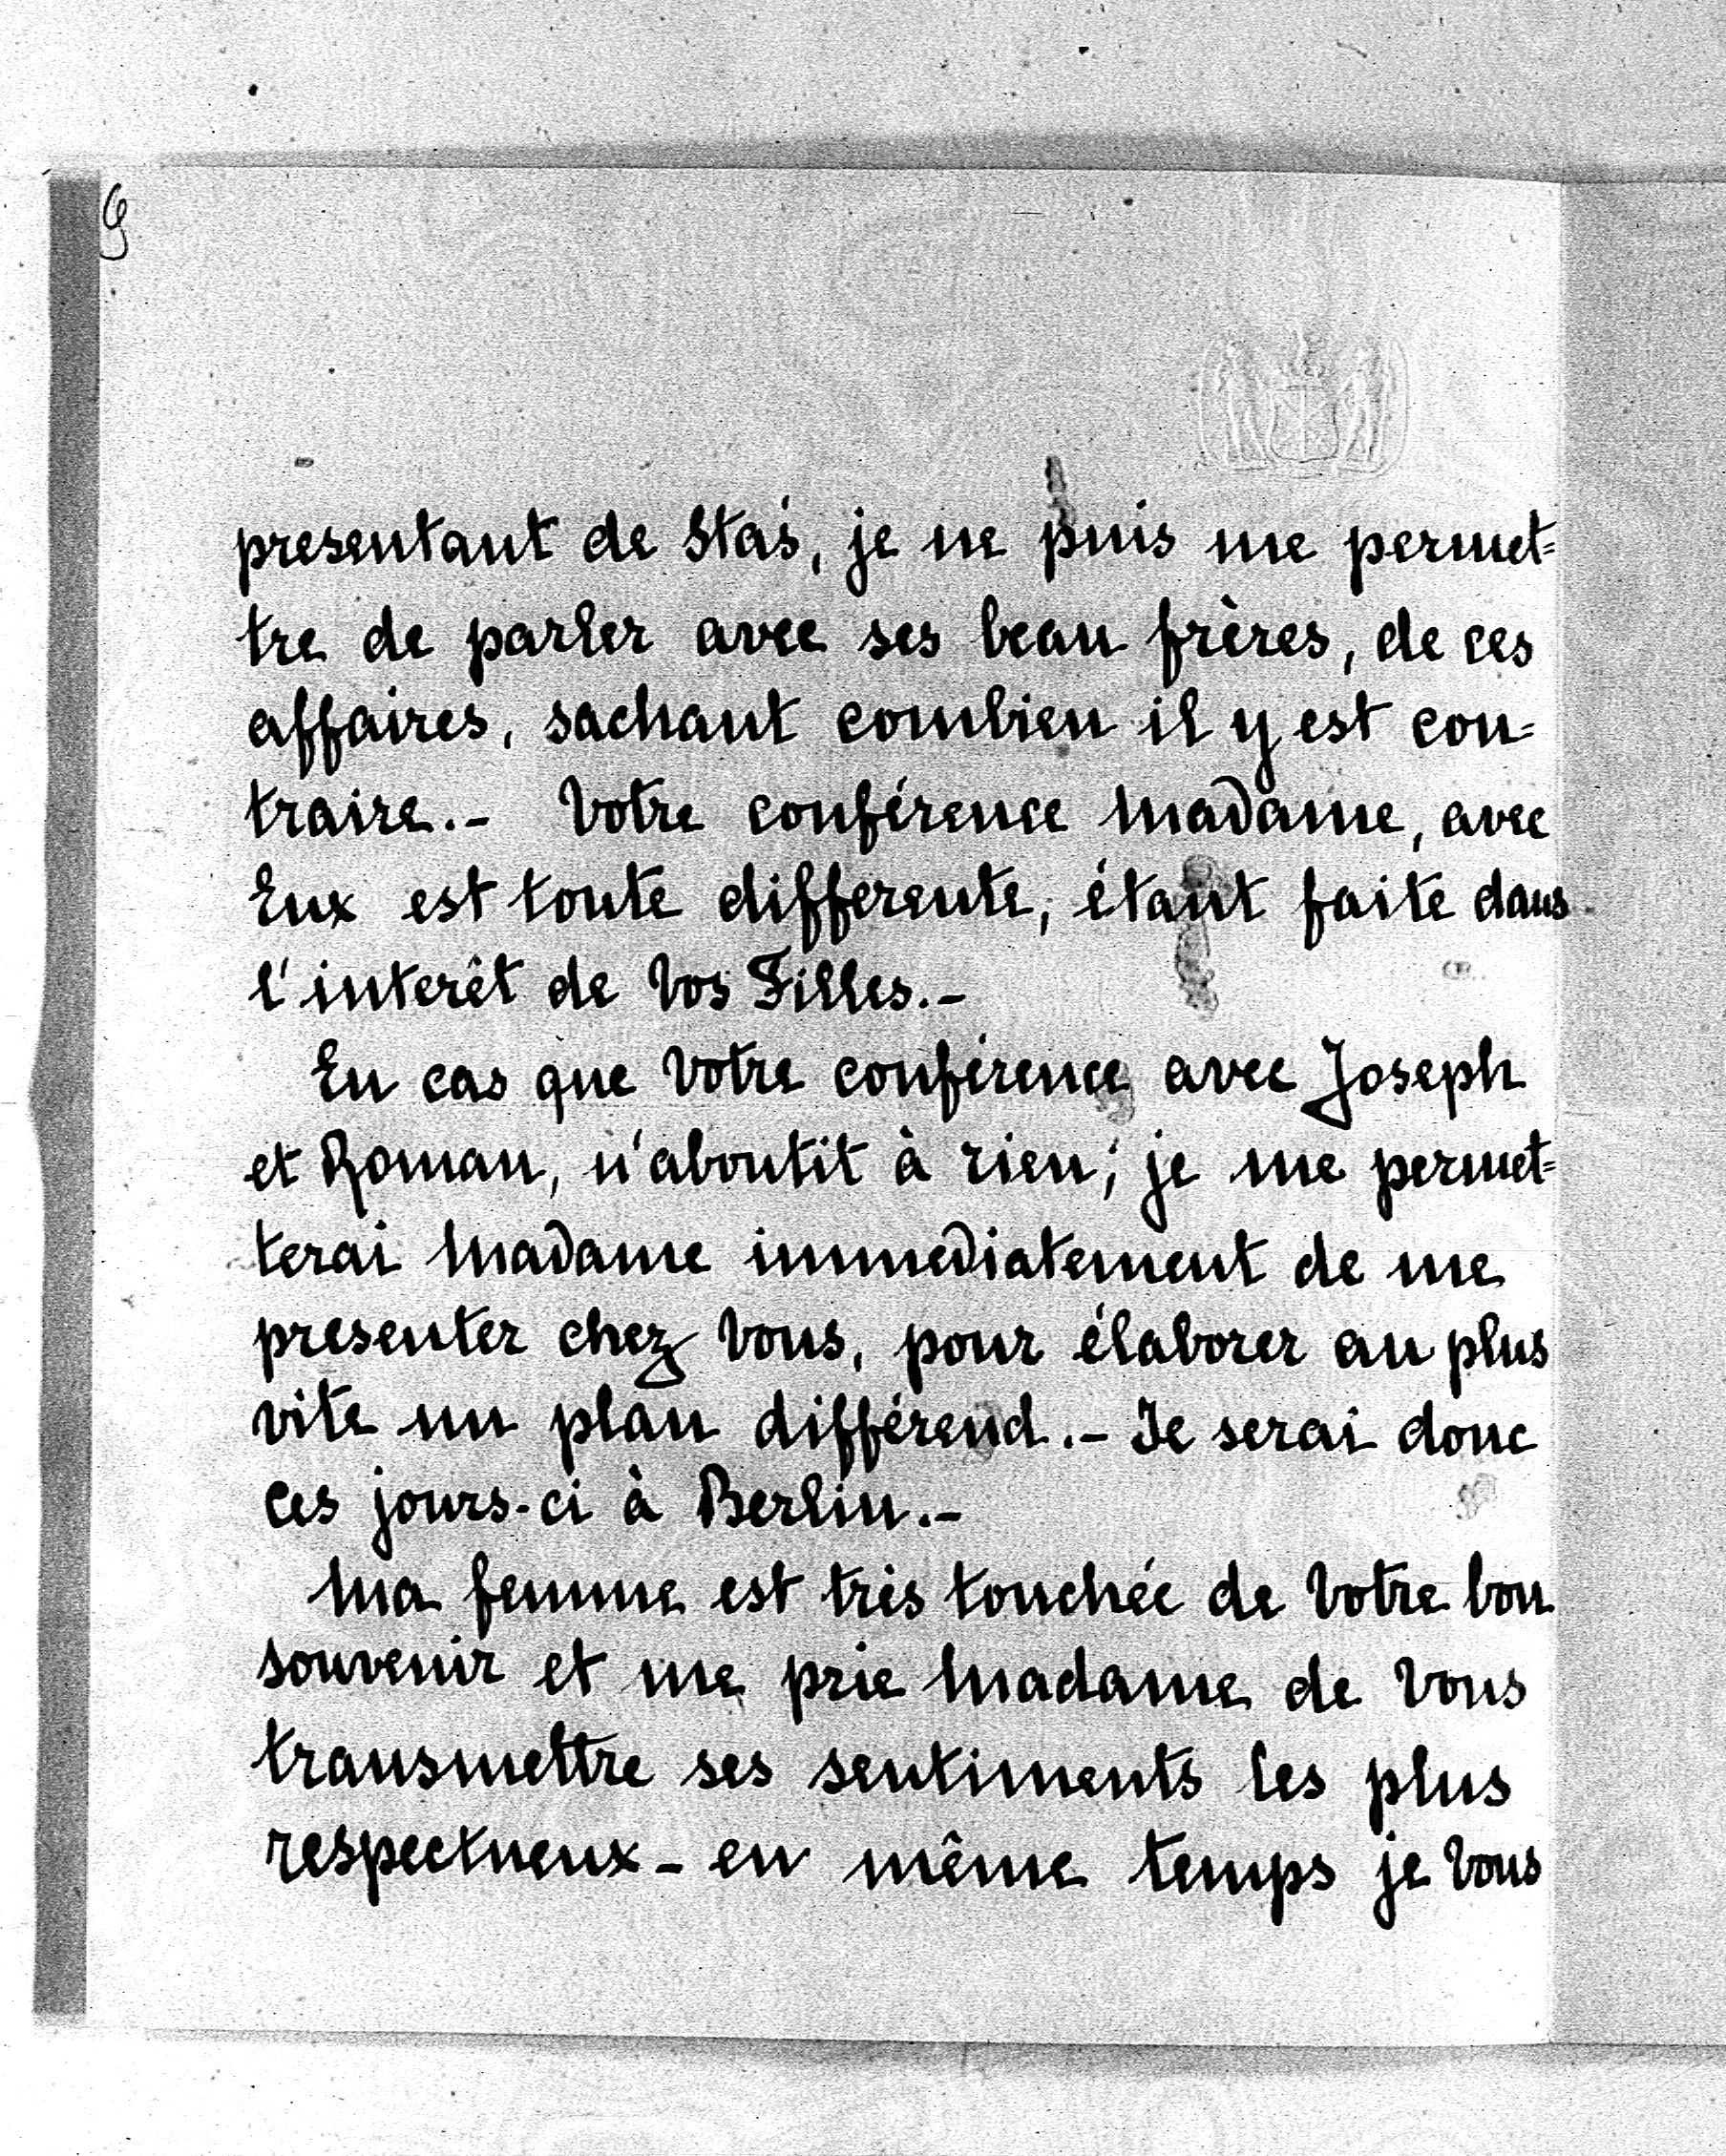 presentant de Staś, je ne puis me permet=
tre de parler avec ses beau frères, de ces
affaires, sachant combien il y est con=
traire.- Votre conférence Madame, avec
Eux est toute differente, étant faite dans
l'interêt de Vos Filles.-
En cas que Votre conférence avec Joseph
et Roman, n'aboutit à rien; je me permet=
terai Madame immediatement de me
presenter chez Vous, pour élaborer au plus
vite un plan différend.- Je serai donc
ces jours-ci à Berlin.-
Ma femme est très touchée de Votre bon
souvenir et me prie Madame de Vous
transmettre ses sentiments les plus
respectueux - en même temps je Vous